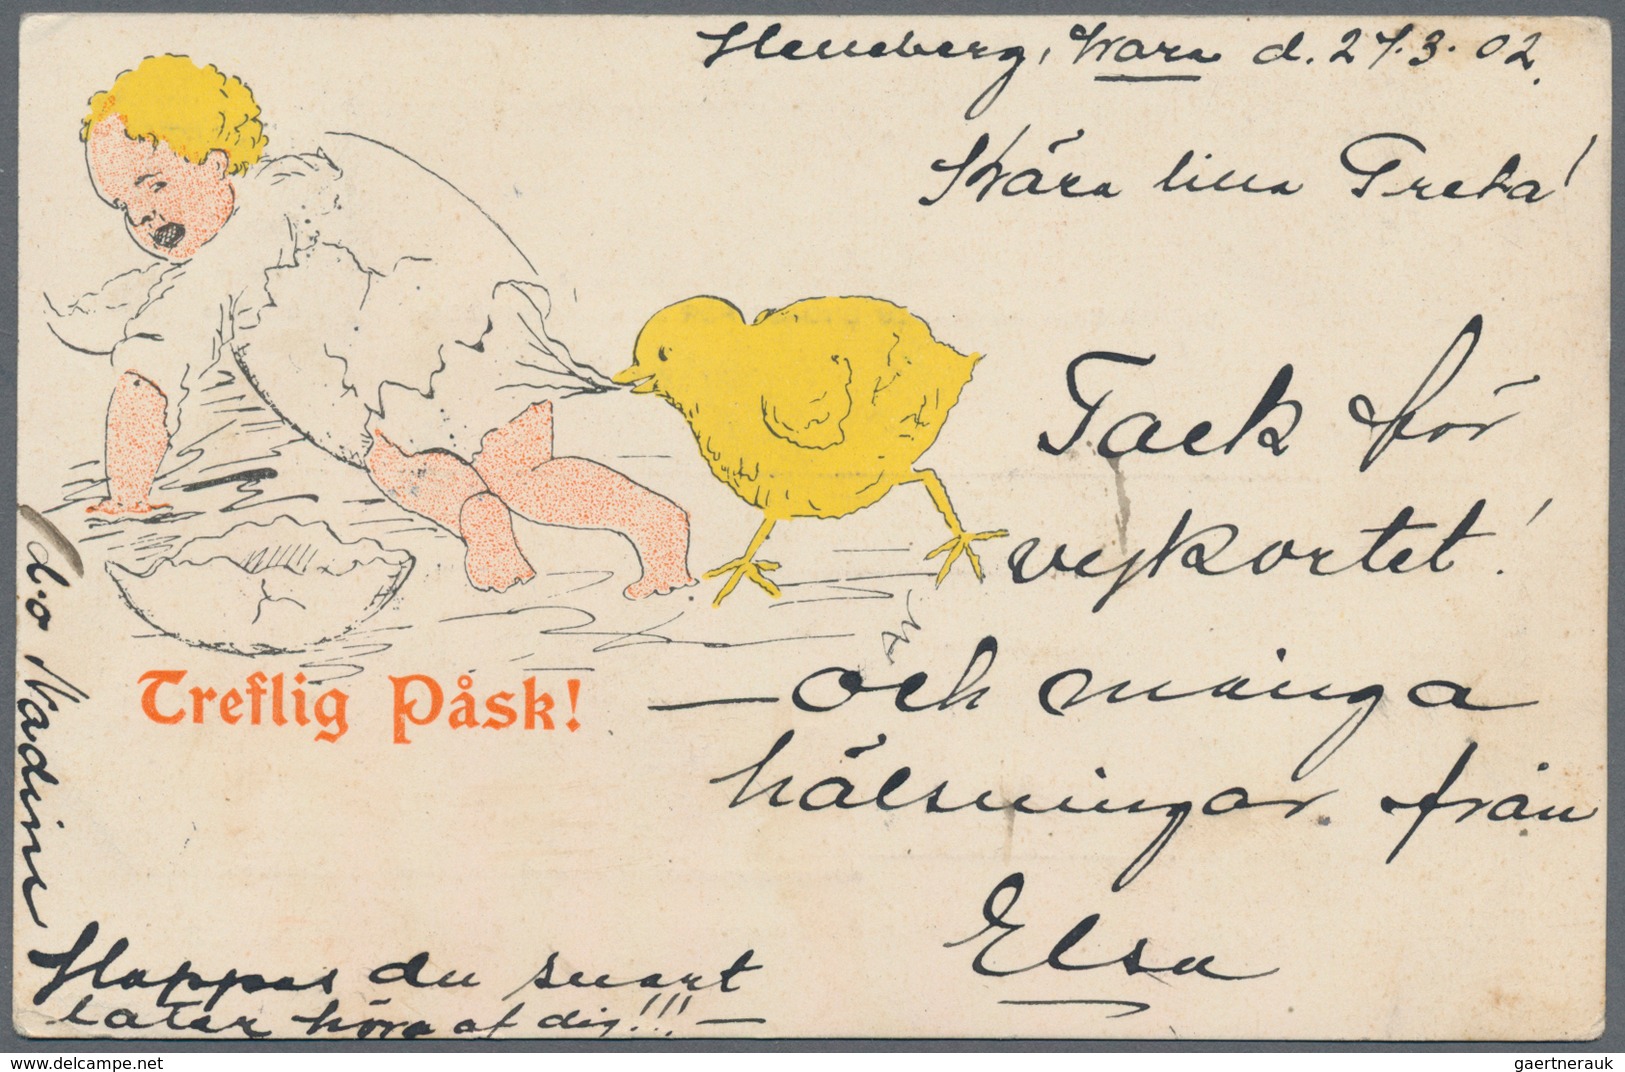 d. 27.3.02.
Kära lilla Greta!
Tack för
vykortet!
— och många
hälsningar från
Elsa
Treflig Påsk!
Hoppas du snart
låter höra af dig!!! —
gaertnerauk